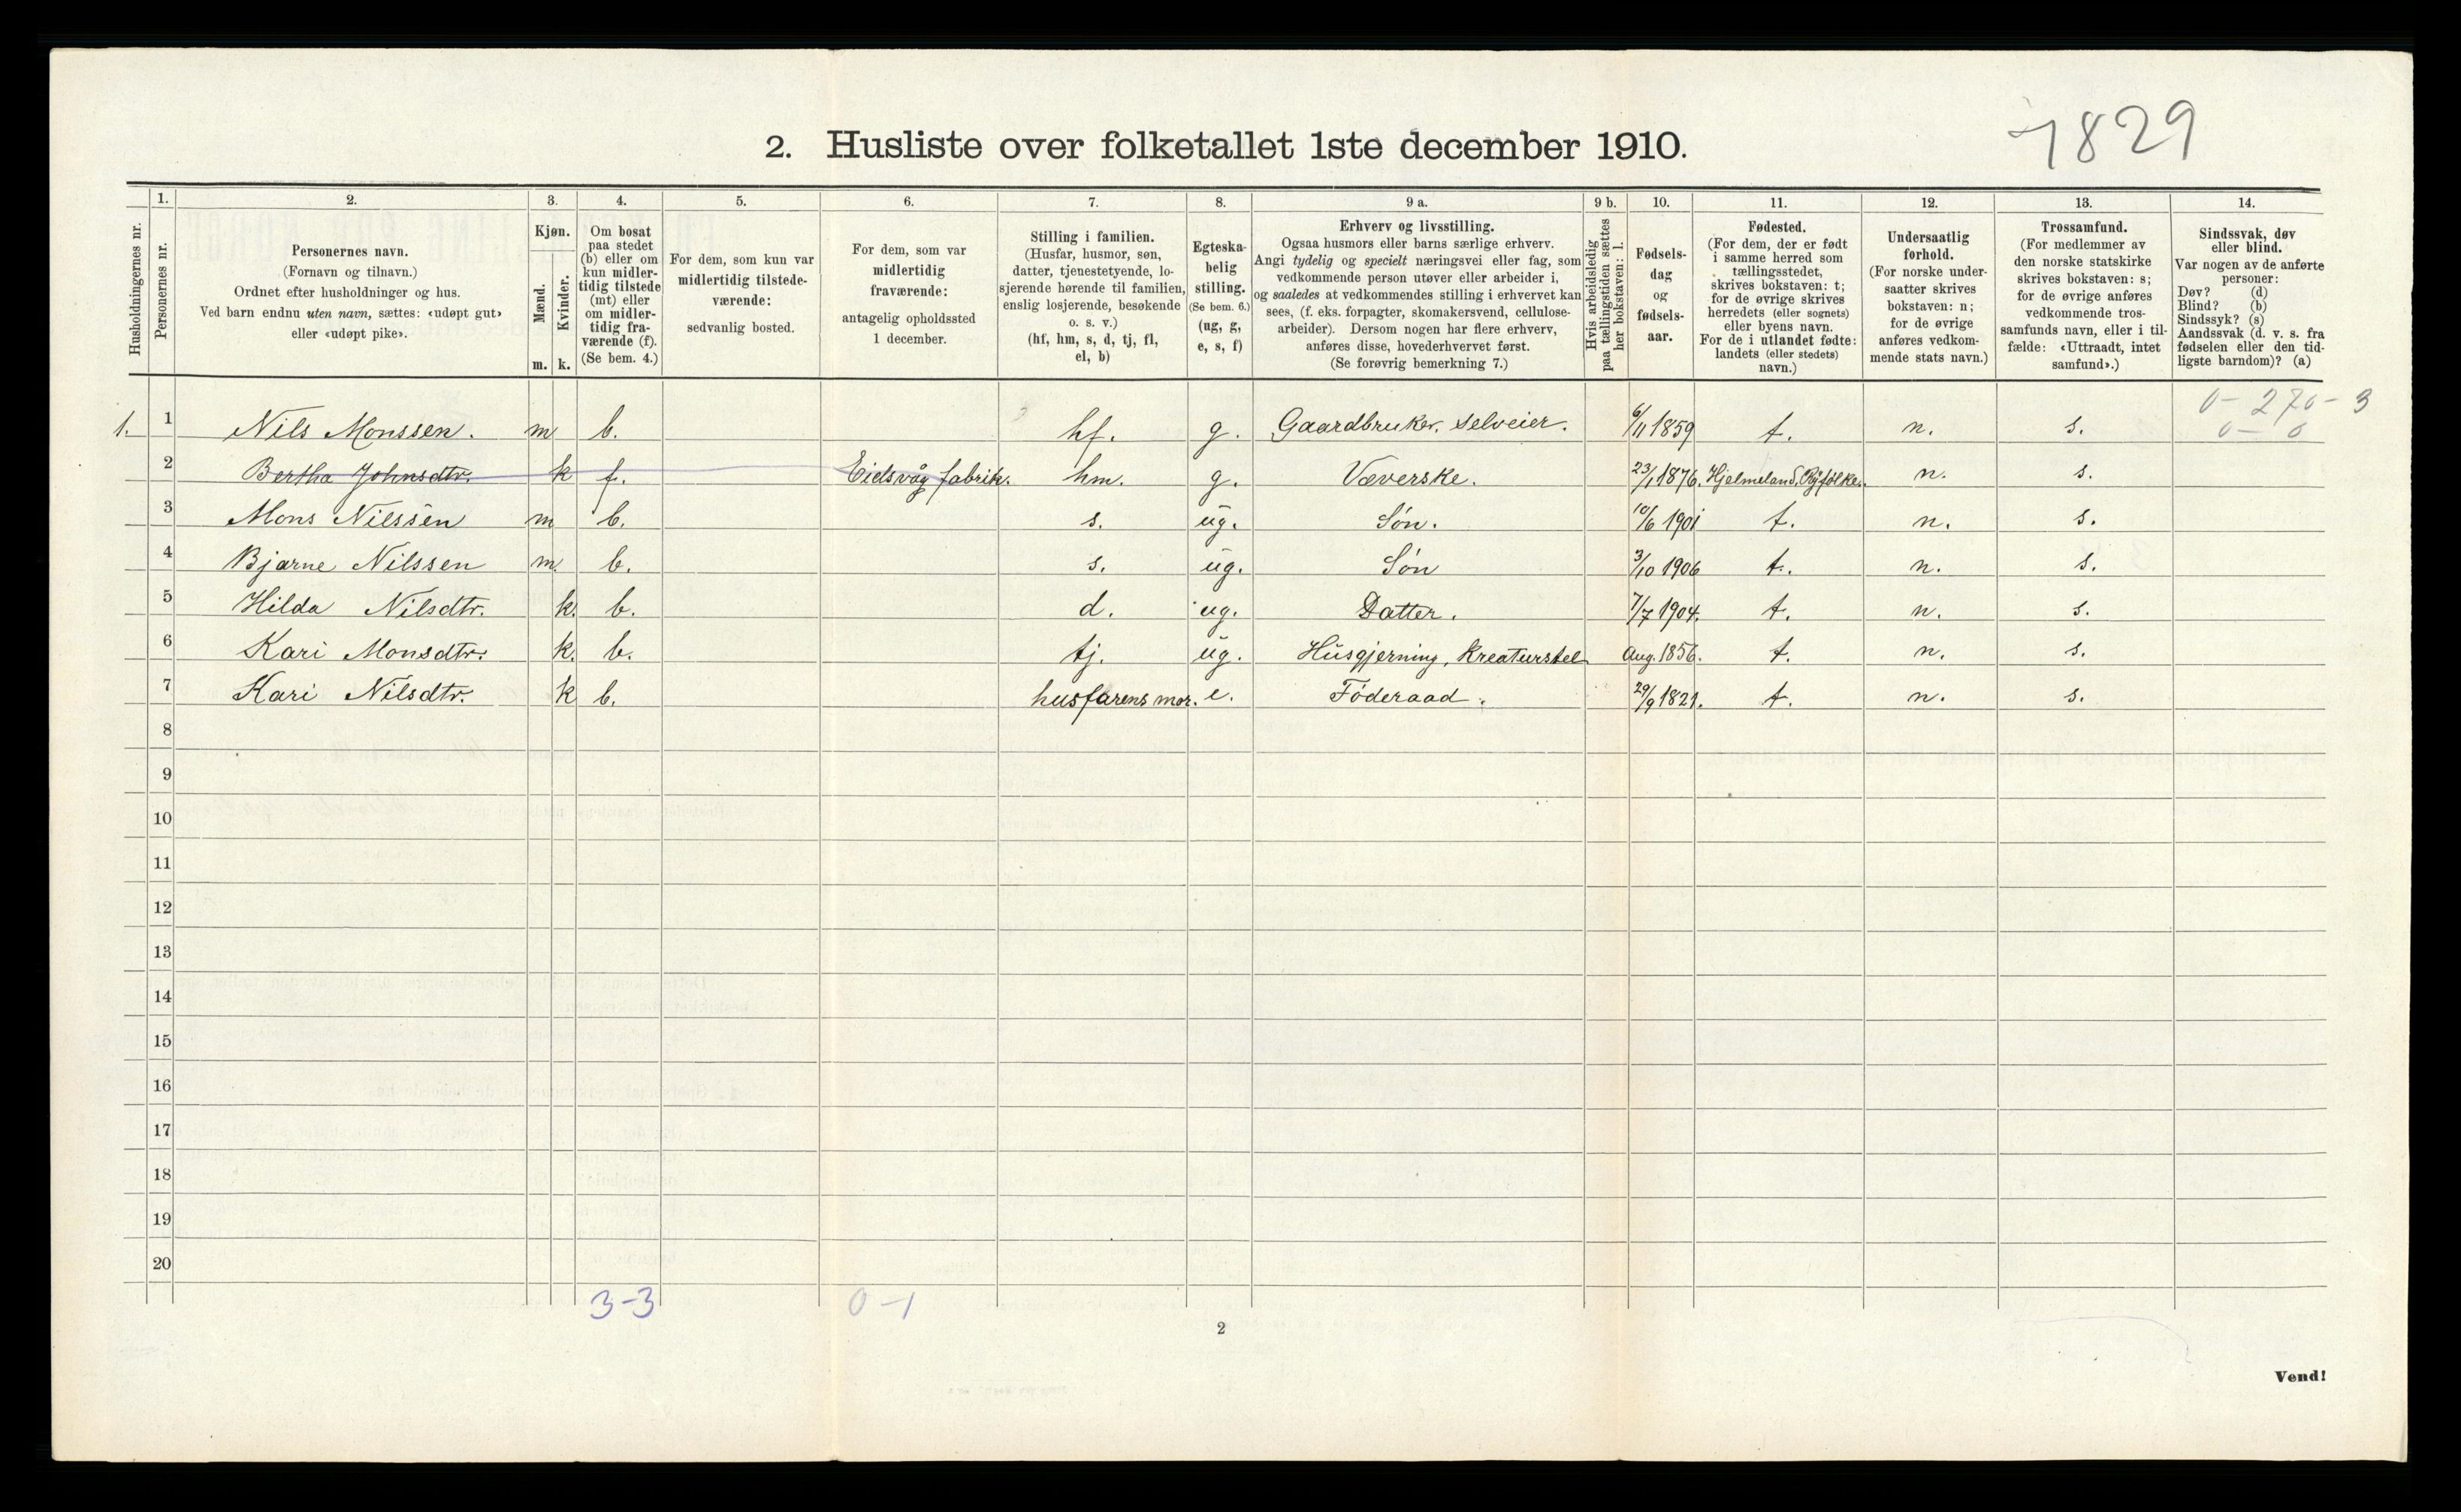 7829
2. Husliste over folketallet 1ste december 1910.
Husholdningernes nr.
1.
Personernes nr.
2.
Personernes navn.
(Fornavn og tilnavn.)
Ordnet efter husholdninger og hus.
Ved barn endnu uten navn, sættes: «udøpt gut»
eller «udøpt pike».
3.
Kjøn.
Mænd.
Kvinder.
m. k.
4.
Om bosat
paa stedet
(b) eller om
kun midler-
tidig tilstede
(mt) eller
om midler-
tidig fra-
værende (f).
(Se bem. 4.)
5.
For dem, som kun var
midlertidig tilstede-
værende:
sedvanlig bosted.
6.
For dem, som var
midlertidig
fraværende:
antagelig opholdssted
1 december.
7.
Stilling i familien.
(Husfar, husmor, søn,
datter, tjenestetyende, lo-
sjerende hørende til familien,
enslig losjerende, besøkende
o. s. v.)
(hf, hm, s, d, tj, fl,
el, b)
8.
Egteska-
belig
stilling.
(Se bem. 6.)
(ug, g,
e, s, f)
9 a.
Erhverv og livsstilling.
Ogsaa husmors eller barns særlige erhverv.
Angi tydelig og specielt næringsvei eller fag, som
vedkommende person utøver eller arbeider i,
og saaledes at vedkommendes stilling i erhvervet kan
sees, (f. eks. forpagter, skomakersvend, cellulose-
arbeider). Dersom nogen har flere erhverv,
anføres disse, hovederhvervet først.
(Se forøvrig bemerkning 7.)
9 b.
Hvis arbeidsledig
paa tællingstiden sættes
her bokstaven: l.
10.
Fødsels-
dag
og
fødsels-
aar.
11.
Fødested.
(For dem, der er født
i samme herred som
tællingsstedet,
skrives bokstaven: t;
for de øvrige skrives
herredets (eller sognets)
eller byens navn.
For de i utlandet fødte:
landets (eller stedets)
navn.)
12.
Undersaatlig
forhold.
(For norske under-
saatter skrives
bokstaven: n;
for de øvrige
anføres vedkom-
mende stats navn.)
13.
Trossamfund.
(For medlemmer av
den norske statskirke
skrives bokstaven: s;
for de øvrige anføres
vedkommende tros-
samfunds navn, eller i til-
fælde: «Uttraadt, intet
samfund».)
14.
Sindssvak, døv
eller blind.
Var nogen av de anførte
personer:
Døv? (d)
Blind? (b)
Sindssyk? (s)
Aandssvak (d. v. s. fra
fødselen eller den tid-
ligste barndom)? (a)
0 - 270 - 3
0 - 0
1. 1 Nils Monssen. m b. hf. g. Gaardbruker, selveier. 6/11 1859 t. n. s.
2 Bertha Johnsdtr. k f. Eidsvåg fabrik. hm. g. Væverske. 23/1 1876. Hjelmeland, Ryfolke. n. s.
3 Mons Nilssen m b. s. ug. Søn. 10/6 1901 t. n. s.
4 Bjarne Nilssen m. b. s. ug. Søn 3/10 1906 t. n. s.
5 Hilda Nilsdtr. k. b. d. ug. Datter. 7/7 1904. t. n. s.
6 Kari Monsdtr. k. b. tj. ug. Husgjerning, kreaturstel Aug. 1856. t. n. s.
7 Kari Nilsdtr. k b. husfarens mor. e. Føderaad. 29/9 1821. t. n. s.
8
9
10
11
12
13
14
15
16
17
18
19
20
3-3 0-1
2
Vend!